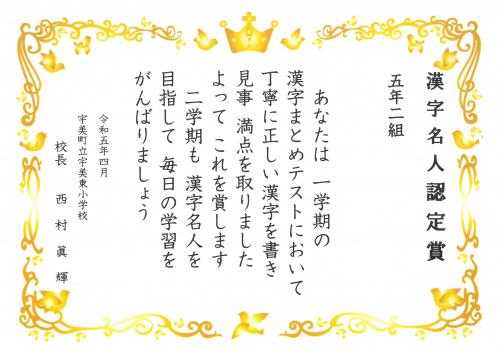 漢字名人認定賞
五年二組
あなたは 一学期の
漢字まとめテストにおいて
丁寧に正しい漢字を書き
見事 満点を取りました
よって これを賞します
二学期も 漢字名人を
目指して 毎日の学習を
がんばりましょう
令和五年四月
宇美町立宇美東小学校
校長 西村 眞輝